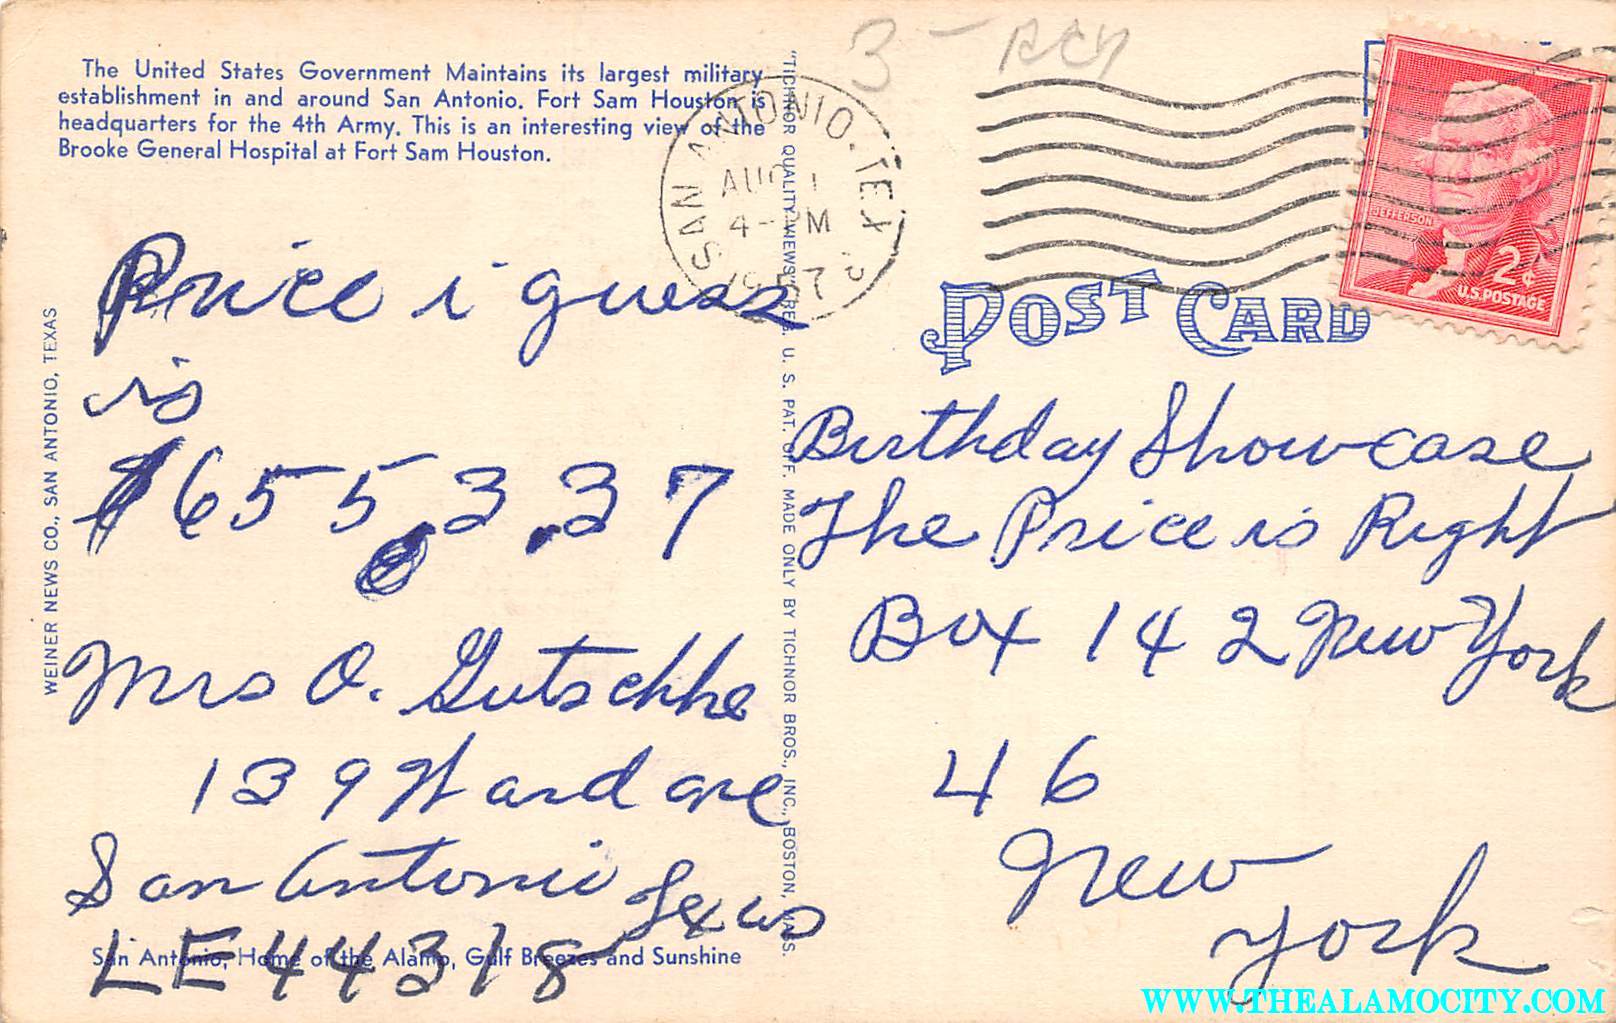 The United States Government Maintains its largest military
establishment in and around San Antonio. Fort Sam Houston is
headquarters for the 4th Army. This is an interesting view of the
Brooke General Hospital at Fort Sam Houston.
Price i guess
is
$655.3.37
Mrs O. Gutschke
139 Ward ave
San Antonio Texas
LE44318
San Antonio, Home of the Alamo, Gulf Breezes and Sunshine
WEINER NEWS CO., SAN ANTONIO, TEXAS
"TICHNOR QUALITY VIEWS," REG. U. S. PAT. OFF. MADE ONLY BY TICHNOR BROS., INC., BOSTON, MASS.
SAN ANTONIO, TEX
AUG 1
4-PM
1957
3-
JEFFERSON
2¢
U.S. POSTAGE
POST CARD
Birthday Showcase
The Price is Right
Box 142 New York
46
New
York
WWW.THEALAMOCITY.COM